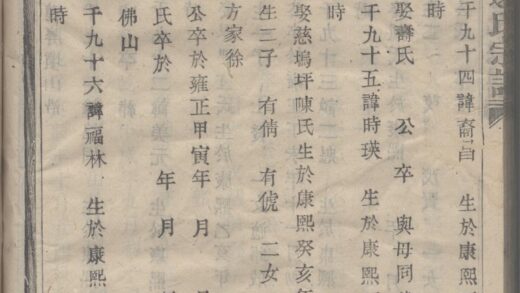 氏宗譜
千九十四諱裔昌 生於康熙
時
娶齊氏 公卒 與母同
千九十五諱時瑛 生於康熙
時
娶慈塢坪陳氏生於康熙癸亥年
生三子 有倩 有俿 二女
方家徐
公卒於雍正甲寅年 月
氏卒於 年 月
佛山
千九十六諱福林 生於康熙
時